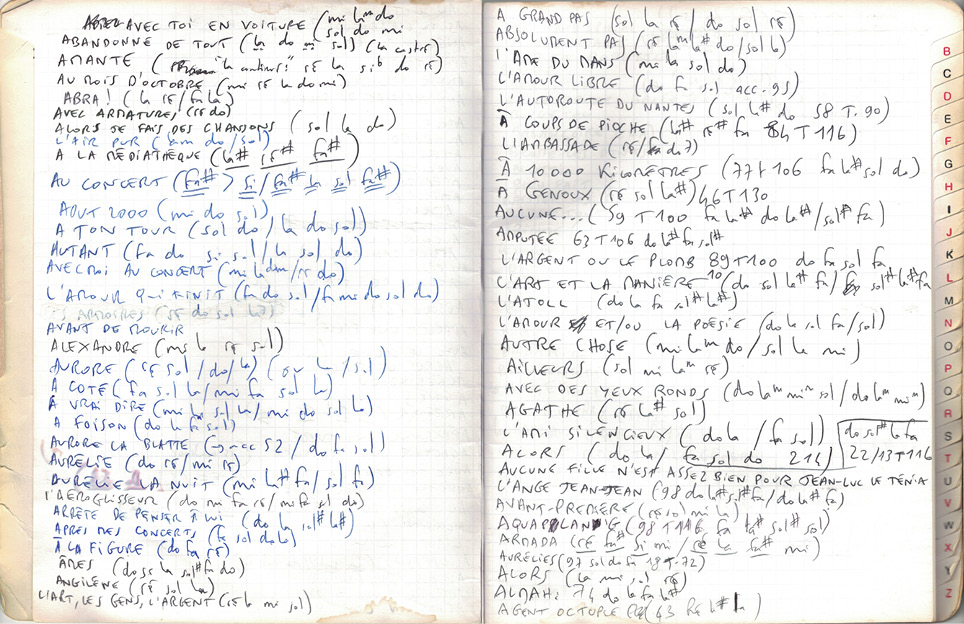 AVEC TOI EN VOITURE (mi la m do
ABANDONNÉ DE TOUT (la do mi sol) (la castor)
AMANTE (
AU MOIS D'OCTOBRE (mi ré la do mi)
ABRA! (la ré/fa la)
AVEC ARMATURES (ré do)
ALORS JE FAIS DES CHANSONS (sol la do)
L'AIR PUR (lam do/sol)
A LA MÉDIATHÈQUE (la# ré# fa#)
AU CONCERT (fa# > si/fa# la sol fa#)
AOUT 2000 (mi do sol)
A TON TOUR (sol do/la do sol)
AUTANT (fa do si sol/la sol do)
AVEC MOI AU CONCERT (mi la dom/ré do)
L'AMOUR QUI FINIT (fa do sol/fa mi do sol do)
ARMOIRES (ré do sol la)
AVANT DE MOURIR
ALEXANDRE (mi la ré sol)
AURORE (ré sol/do/la) (ou la/sol)
A COTÉ (fa sol la/mi fa sol la)
A VRAI DIRE (mi la sol la/mi do sol la)
A FOISON (do la fa sol)
AURORE LA BLATTE (acc 52/do fa sol)
AURÉLIE (do ré/mi ré)
AURÉLIE LA NUIT (mi la# fa sol/fa)
L'AÉROGLISSEUR (do mi fa ré/
ARRÊTE DE PENSER À LUI (do la sol# la#)
APRÈS MES CONCERTS (fa sol do la)
À LA FIGURE (do fa ré)
ÂMES (do sol la sol# fa do)
ANGILÈNE (ré sol la)
L'ART, LES GENS, L'ARGENT (ré la mi sol)
A GRAND PAS (sol la ré/do sol ré)
ABSOLUMENT PAS (ré lam la# do/sol la)
L'ÂME DU MANS (mi la sol do)
L'AMOUR LIBRE (do fa sol acc. 95)
L'AUTOROUTE DU NANTES (sol la# do 58 T. 90)
À COUPS DE PIOCHE (la# ré# fa 84 T 116)
L'AMBASSADE (ré/fa do 7)
À 10000 KILOMÈTRES (77 T 106 fa la# sol do)
A GENOUX (ré sol la#) 46 T 130
AUCUNE... (59 T 100 fa la# do la#/sol# fa)
AMPUTÉE 63 T 106 do la# fa sol#
L'ARGENT OU LE PLOMB 89 T 100 do fa sol fa
L'ART ET LA MANIÈRE 10 (do sol la# fa/ sol# la# fa
L'ATOLL (do la fa sol# la#)
L'AMOUR ET/OU LA POÉSIE (do la sol fa/sol)
AUTRE CHOSE (mi lam do/sol la mi)
AILLEURS (sol mi lam ré)
AVEC DES YEUX RONDS (do lam mim sol/do lam mim)
AGATHE (ré la# sol)
L'AMI SILENCIEUX (do la/fa sol)
ALORS (do la/fa sol do 214)
do sol# la fa
22/13 T 116
AUCUNE FILLE N'EST ASSEZ BIEN POUR JEAN-LUC LE TÉNIA
L'ANGE JEAN-JEAN (98 do la# sol# fa/do la# fa)
AVANT-PREMIÈRE (ré sol mi la)
AQUAPLANING (98 T 116 fa la# sol# sol)
ARMADA (ré fa# si mi/ré la fa# mi)
AURÉLIES (97 sol do fa 18 T. 72)
ALORS (la mi sol ré)
ALMAH: 74 do la fa la#
AGENT OCTOPLE (43 fa la# la)
B
C
D
E
F
G
H
I
J
K
L
M
N
O
P
Q
R
S
T
U
V
W
X
Y
Z